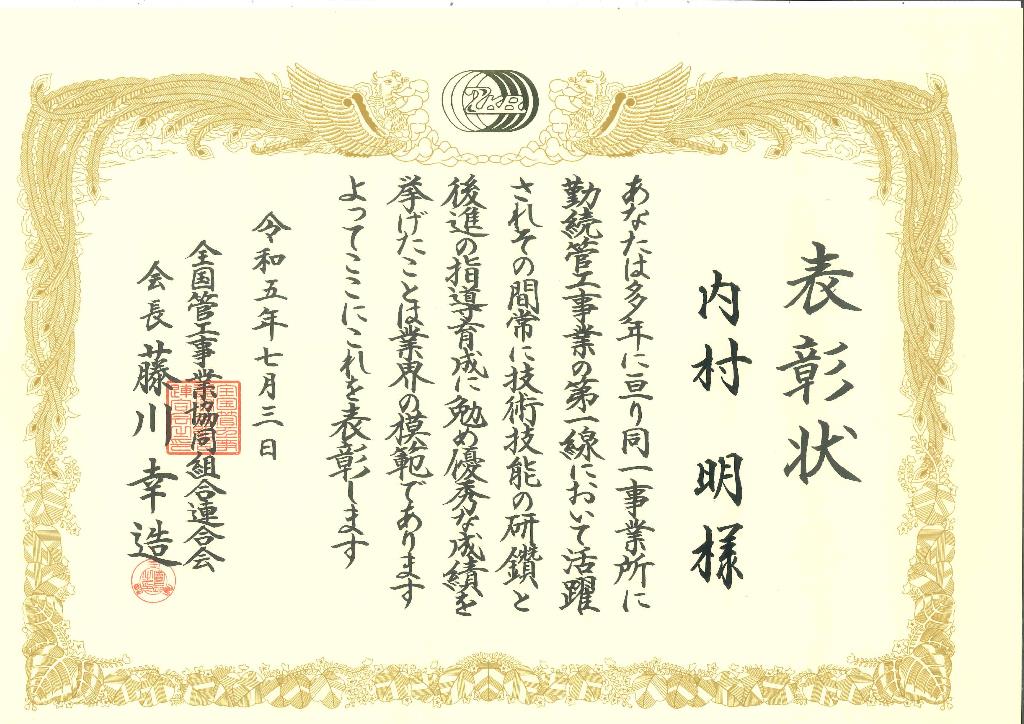 表彰状
内村 明様
あなたは多年に亘り同一事業所に
勤続管工事業の第一線において活躍
されその間常に技術技能の研鑽と
後進の指導育成に勉め優秀な成績を
挙げたことは業界の模範であります
よってここにこれを表彰します
令和五年七月三日
全国管工事業協同組合連合会
会長 藤川幸造